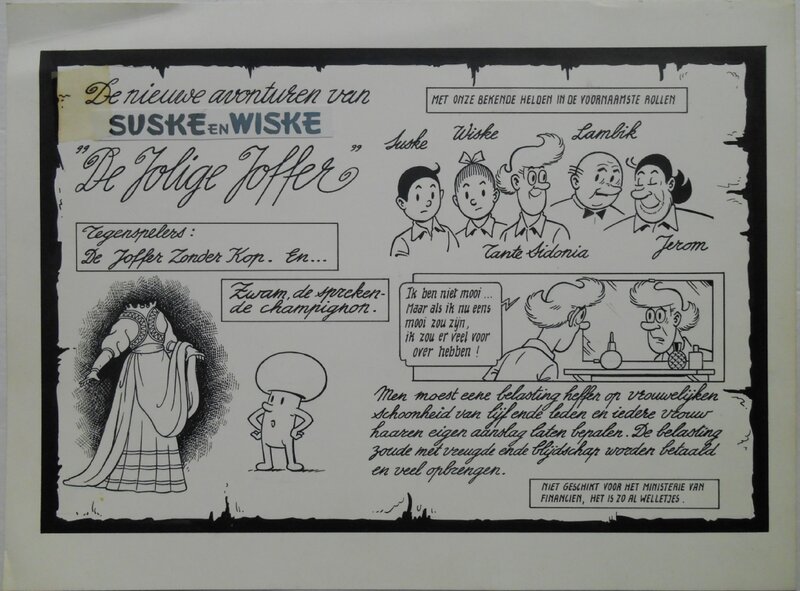 De nieuwe avonturen van
SUSKE EN WISKE
"De Jolige Joffer"
MET ONZE BEKENDE HELDEN IN DE VOORNAAMSTE ROLLEN
Suske
Wiske
Lambik
Tante Sidonia
Jerom
Tegenspelers:
De Joffer Zonder Kop. En...
Zwam, de spreken-
de champignon.
Ik ben niet mooi...
Maar als ik nu eens
mooi zou zijn,
ik zou er veel voor
over hebben!
Men moest eene belasting heffen op vrouwelijken
schoonheid van lijf ende leden en iedere vrouw
haaren eigen aanslag laten bepalen. De belasting
zoude met vreugde ende blijdschap worden betaald
en veel opbrengen.
NIET GESCHIKT VOOR HET MINISTERIE VAN
FINANCIEN, HET IS ZO AL WELLETJES.